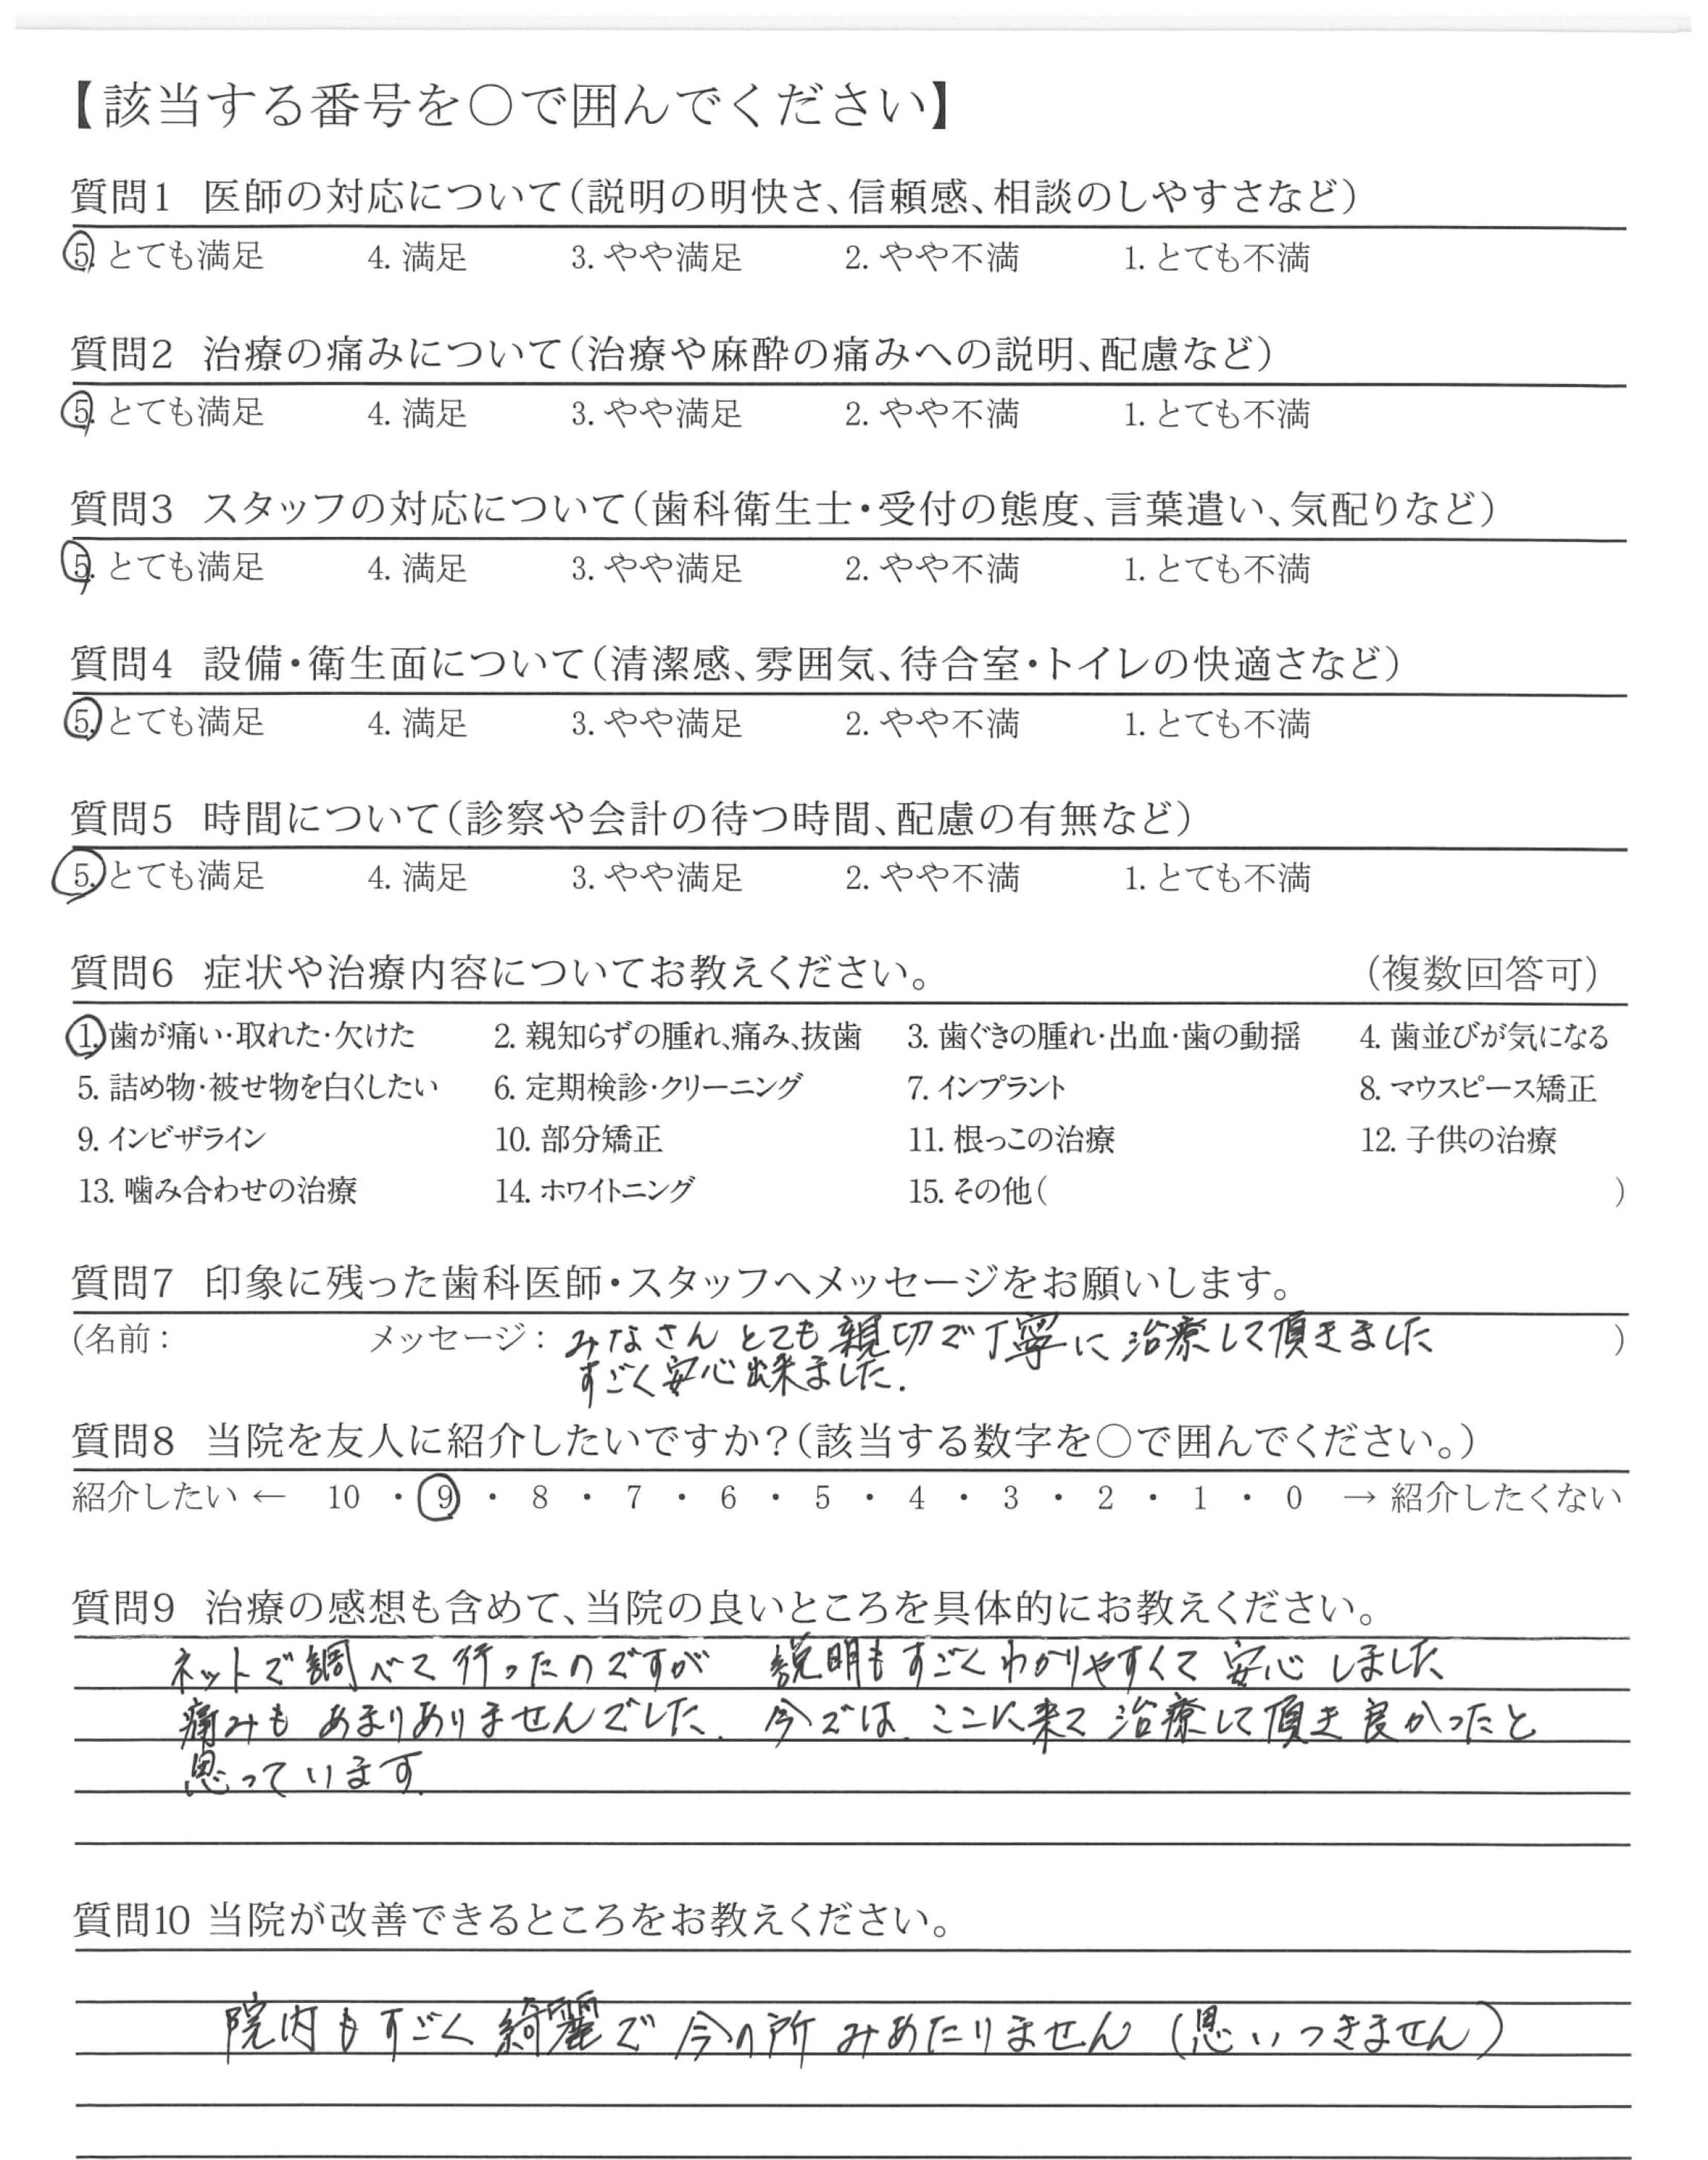 【該当する番号を○で囲んでください】
質問1 医師の対応について(説明の明快さ、信頼感、相談のしやすさなど)
5. とても満足 4. 満足 3. やや満足 2. やや不満 1. とても不満
質問2 治療の痛みについて(治療や麻酔の痛みへの説明、配慮など)
5. とても満足 4. 満足 3. やや満足 2. やや不満 1. とても不満
質問3 スタッフの対応について(歯科衛生士・受付の態度、言葉遣い、気配りなど)
5. とても満足 4. 満足 3. やや満足 2. やや不満 1. とても不満
質問4 設備・衛生面について(清潔感、雰囲気、待合室・トイレの快適さなど)
5. とても満足 4. 満足 3. やや満足 2. やや不満 1. とても不満
質問5 時間について(診察や会計の待つ時間、配慮の有無など)
5. とても満足 4. 満足 3. やや満足 2. やや不満 1. とても不満
質問6 症状や治療内容についてお教えください。 (複数回答可)
1. 歯が痛い・取れた・欠けた 2. 親知らずの腫れ、痛み、抜歯 3. 歯ぐきの腫れ・出血・歯の動揺 4. 歯並びが気になる
5. 詰め物・被せ物を白くしたい 6. 定期検診・クリーニング 7. インプラント 8. マウスピース矯正
9. インビザライン 10. 部分矯正 11. 根っこの治療 12. 子供の治療
13. 噛み合わせの治療 14. ホワイトニング 15. その他( )
質問7 印象に残った歯科医師・スタッフへメッセージをお願いします。
(名前: メッセージ: みなさん とても親切で丁寧に 治療して頂きました )
すごく安心出来ました.
質問8 当院を友人に紹介したいですか?(該当する数字を○で囲んでください。)
紹介したい ← 10 ・ 9 ・ 8 ・ 7 ・ 6 ・ 5 ・ 4 ・ 3 ・ 2 ・ 1 ・ 0 → 紹介したくない
質問9 治療の感想も含めて、当院の良いところを具体的にお教えください。
ネットで調べて行ったのですが 説明もすごくわかりやすくて 安心しました
痛みも あまりありませんでした. 今では、ここに来て 治療して頂き良かったと
思っています.
質問10 当院が改善できるところをお教えください。
院内もすごく綺麗で 今の所 みあたりません (思いつきません)